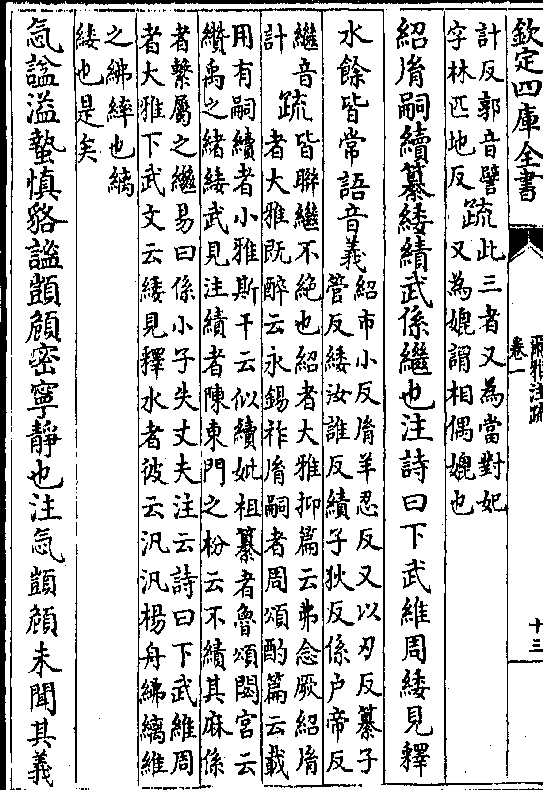 欽定四庫全書
爾雅注疏
卷一
十三
計反郭音譬疏此三者又為當對妃
字林匹地反疏又為媲謂相偶媲也
紹胤嗣續纂緌績武係繼也注詩曰下武維周緌見釋
水餘皆常語音義紹市小反胤羊忍反又以刃反纂子
管反緌汝誰反績子狄反係户帝反
繼音疏皆聯繼不絶也紹者大雅抑篇云弗念厥紹胤
計疏者大雅既醉云永錫祚胤嗣者周頌酌篇云載
用有嗣續者小雅斯干云似續妣祖纂者魯頌閟宮云
纘禹之緒緌武見注績者陳東門之枌云不績其麻係
者繫屬之繼易曰係小子失丈夫注云詩曰下武維周
者大雅下武文云緌見釋水者彼云汎汎楊舟紼縭維
之紼䋏也縭
緌也是矣
忥謐溢蟄慎貉謐顗頠密寧靜也注忥顗頠未聞其義